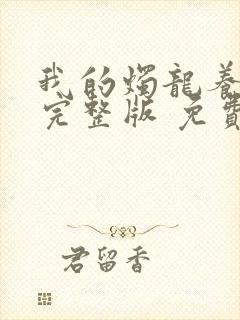 我的燭龍養
完整版 免費
君留香